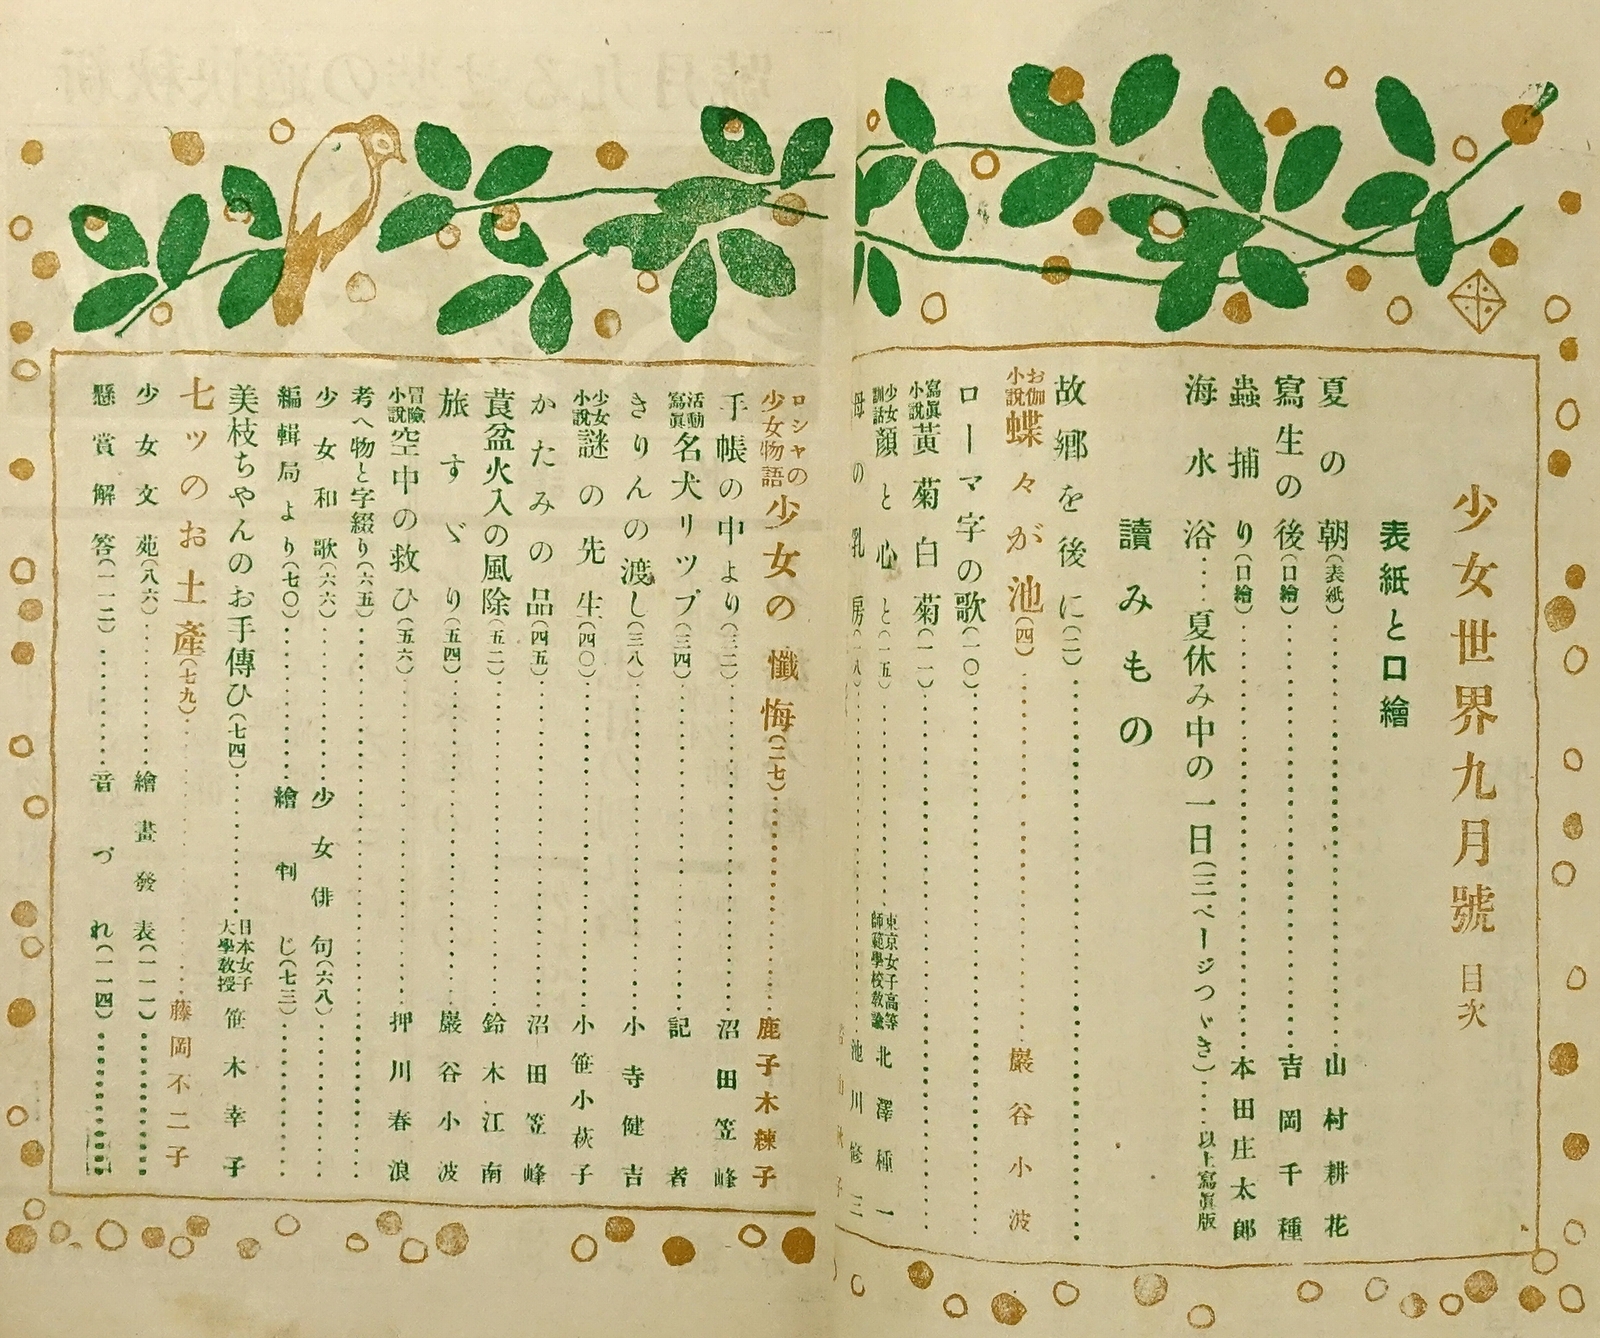 少女世界九月號 目次
表紙と口繪
夏の朝(表紙)山村耕花
寫生の後(口繪)吉岡千種
蟲捕り(口繪)本田庄太郎
海水浴…夏休み中の一日(三ページつゞき)…以上寫眞版
讀みもの
故郷を後に(二)
お伽小説 蝶々が池(四)巖谷小波
ローマ字の歌(一〇)
寫眞小説 黃菊白菊(一一)
少女訓話 顏と心と(一五)東京女子高等師範學校敎諭 北澤種一
母の乳房(一八)池川修三
ロシヤの少女物語 少女の懺悔(二七)鹿子木練子
手帳の中より(三二)沼田笠峰
活動寫眞 名犬リツプ(三四)記者
きりんの渡し(三八)小寺健吉
少女小説 謎の先生(四〇)小笹小萩子
かたみの品(四五)沼田笠峰
蓂盆火入の風除(五二)鈴木江南
旅すゞり(五四)巖谷小波
冒險小説 空中の救ひ(五六)押川春浪
考へ物と字綴り(六五)
少女和歌(六六)少女俳句(六八)
編輯局より(七〇)繪判じ(七三)
美枝ちやんのお手傳ひ(七四)日本女子大學敎授 笹木幸子
七ッのお土產(七九)藤岡不二子
少女文苑(八六)繪畫發表(一一一)
懸賞解答(一一二)音づれ(一一四)